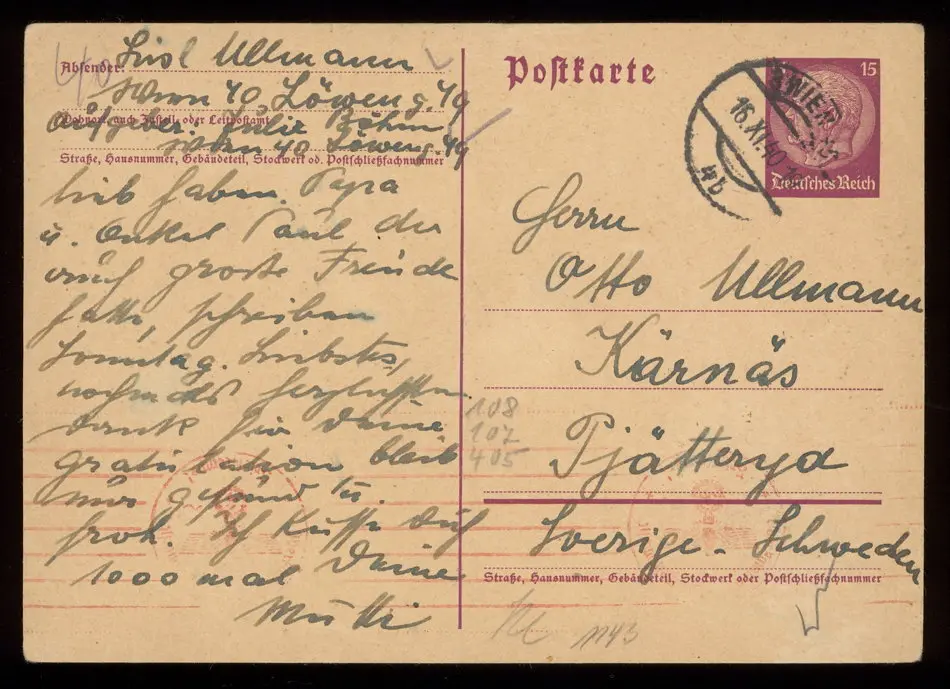 Lisl Ullmann
Absender:
Wien 40 Löweng. 49
Wohnort, auch Zustell- oder Leitpostamt
Aufgeber: Julie Böhm
Wien 40 Löweng. 49
Straße, Hausnummer, Gebäudeteil, Stockwerk od. Postschließfachnummer
lieb haben. Papa
u. Onkel Paul der
auch große Freude
hatte, schreiben
Sonntag. Liebstes,
nochmals herzlichsten
Dank für Deine
gratulation bleib
nur gesund u.
froh. Ich küsse Dich
1000 mal Deine
Mutti
Postkarte
15
WIEN
16.XI.40
4b
Deutsches Reich
Herrn
Otto Ullmann
Kärnäs
Pjätteryd
Sverige - Schweden
Straße, Hausnummer, Gebäudeteil, Stockwerk oder Postschließfachnummer
108
107
405
1143